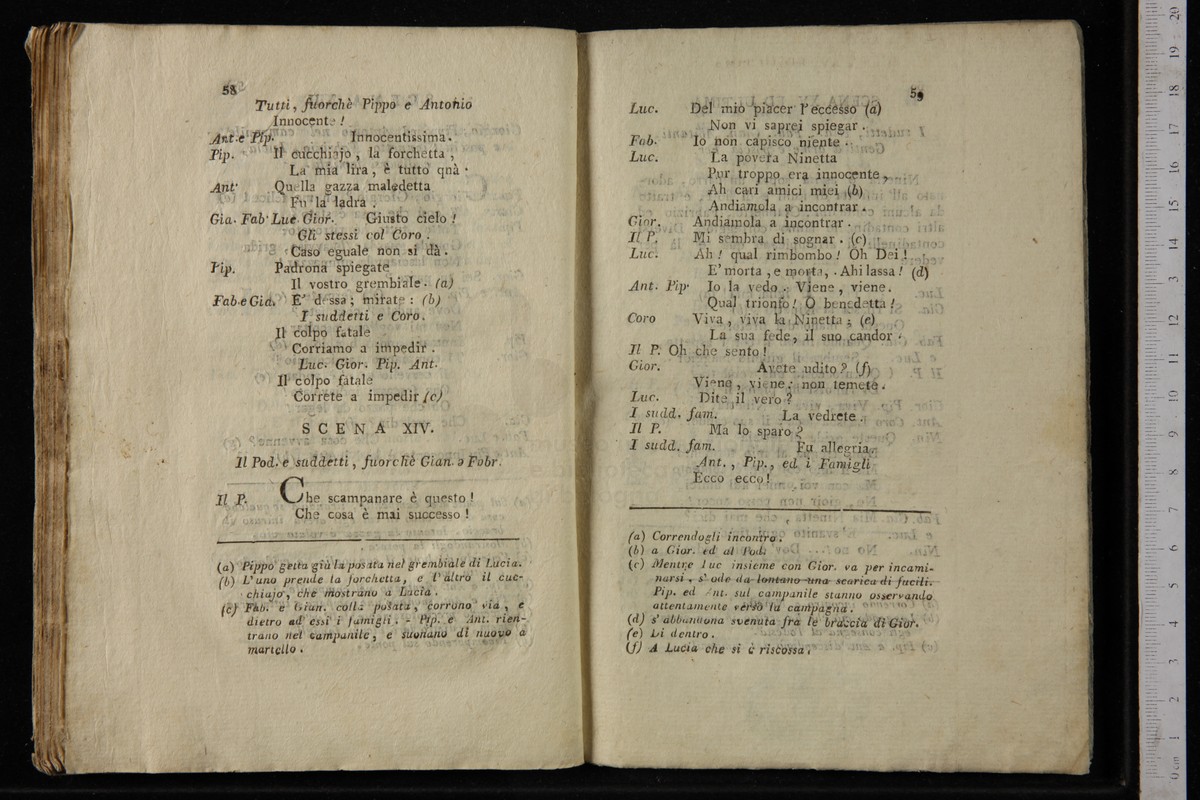 58
Tutti, fuorchè Pippo e Antonio
Innocente !
Ant. e Pip. Innocentissima.
Pip. Il cucchiajo , la forchetta ,
La mia lira , è tutto quà .
Ant. Quella gazza maledetta
Fu la ladra .
Gia. Fab. Luc. Gior. Giusto cielo !
Gli stessi col Coro .
Caso eguale non si dà .
Pip. Padrona spiegate
Il vostro grembiale . (a)
Fab. e Gia. E' dessa ; mirate : (b)
I suddetti e Coro.
Il colpo fatale
Corriamo a impedir .
Luc. Gior. Pip. Ant.
Il colpo fatale
Correte a impedir (c)
SCENA XIV.
Il Pod. e suddetti , fuorchè Gian. e Fabr.
Il P. Che scampanare è questo !
Che cosa è mai successo !
(a) Pippo getta giù la posata nel grembiale di Lucia.
(b) L' uno prende la forchetta, e l' altro il cuc-
chiajo, che mostrano a Lucia .
(c) Fab. e Gian. colla posata , corrono via , e
dietro ad essi i famigli . - Pip. e Ant. rien-
trano nel campanile , e suonano di nuovo a
martello .
59
Luc. Del mio piacer l' eccesso (a)
Non vi saprei spiegar .
Fab. Io non capisco niente .
Luc. La povera Ninetta
Pur troppo era innocente ,
Ah cari amici miei (b)
Andiamola a incontrar .
Gior. Andiamola a incontrar .
Il P. Mi sembra di sognar . (c)
Luc. Ah ! qual rimbombo ! Oh Dei !
E' morta , e morta , . Ahi lassa ! (d)
Ant. Pip. Io la vedo . Viene , viene .
Qual trionfo ! O benedetta !
Coro Viva , viva la Ninetta ; (e)
La sua fede, il suo candor .
Il P. Oh che sento !
Gior. Avete udito ? (f)
Viene , viene : non temete .
Luc. Dite il vero ?
I sudd. fam. La vedrete .
Il P. Ma lo sparo ?
I sudd. fam. Fu allegria .
Ant. , Pip., ed i Famigli
Ecco ecco !
(a) Correndogli incontro .
(b) a Gior. ed al Pod.
(c) Mentre Luc insieme con Gior. va per incami-
narsi , s' ode da lontano una scarica di fucili.
Pip. ed Ant. sul campanile stanno osservando
attentamente verso la campagna .
(d) s' abbandona svenuta fra le braccia di Gior.
(e) Di dentro .
(f) A Lucia che si è riscossa .
0 cm 1 2 3 4 5 6 7 8 9 10 11 12 13 14 15 16 17 18 19 20